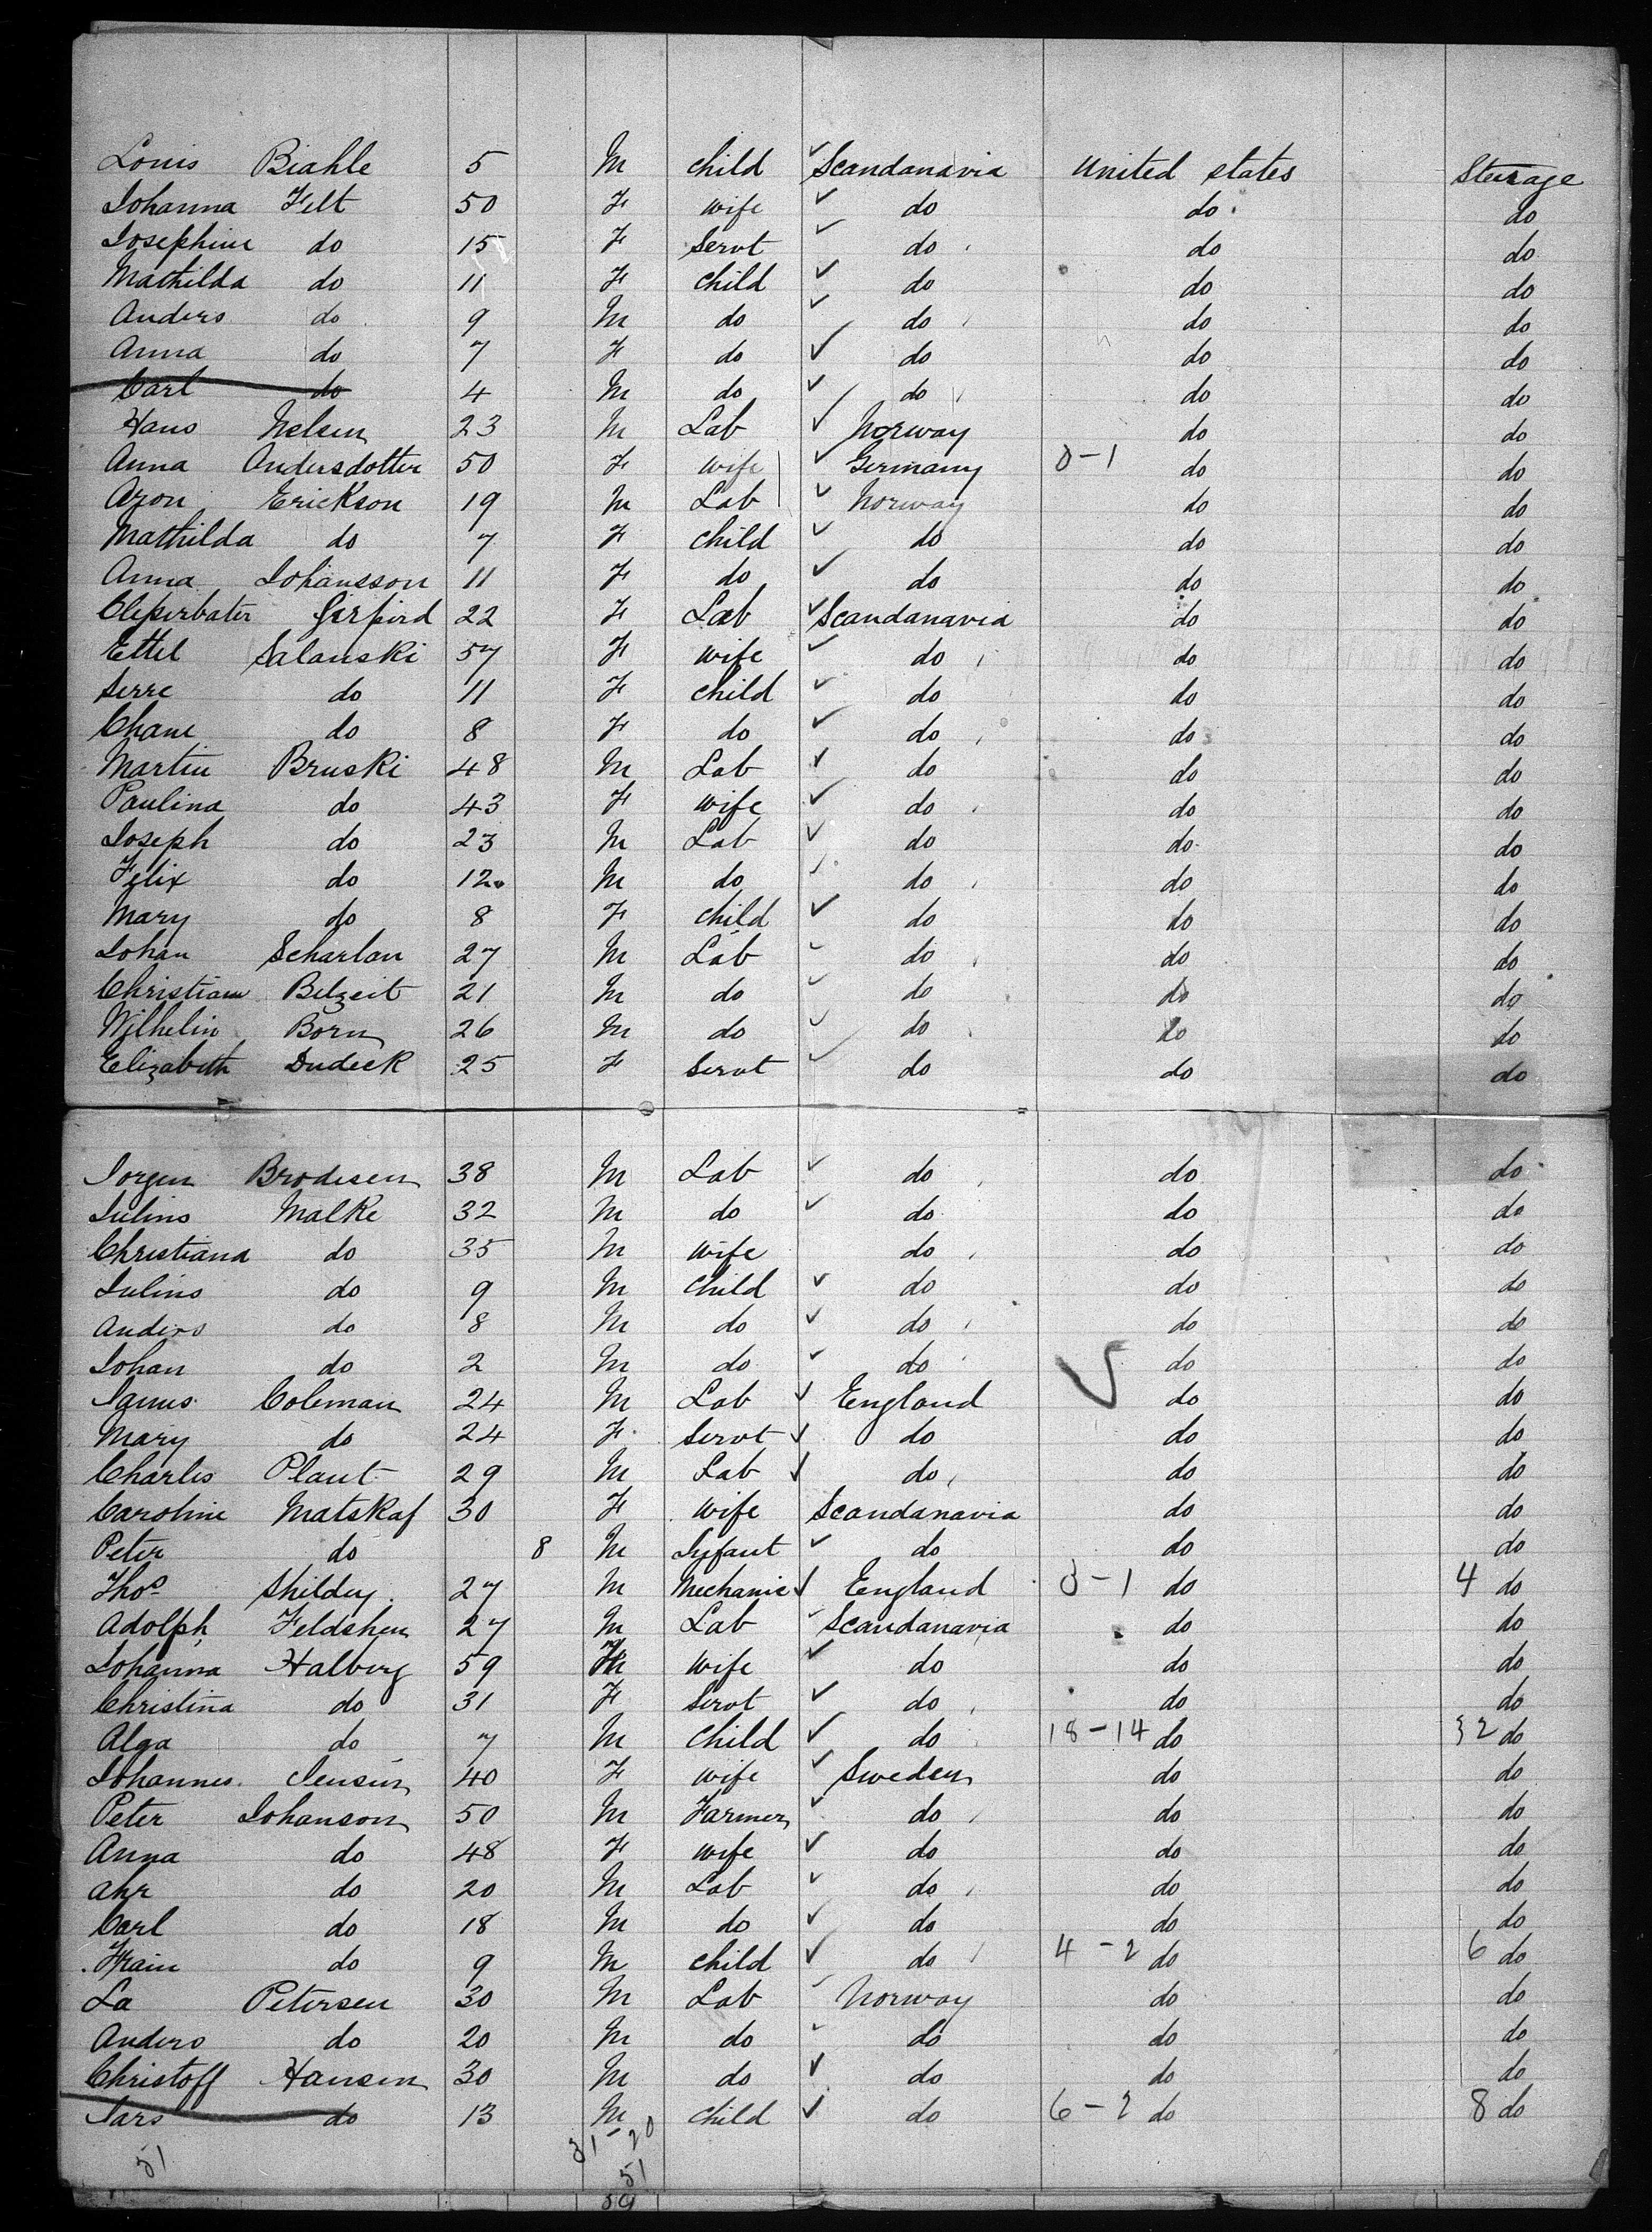 Louis Biahle 5 M child ✓ Scandanavia United states Sterage
Johanna Felt 50 F wife ✓ do do do
Josephine do 15 F Servt ✓ do do do
Mathilda do 11 F child ✓ do do do
Anders do 9 M do ✓ do do do
Anna do 7 F do ✓ do do do
Carl do 4 M do ✓ do do do
Hans Nelsen 23 M Lab ✓ Norway do do
Anna Andersdotter 50 F wife ✓ Germany 0-1 do do
Aron Erickson 19 M Lab ✓ Norway do do
Mathilda do 7 F child ✓ do do do
Anna Johansson 11 F do ✓ do do do
22 F Lab ✓ Scandanavia do do
Ettel Salanski 57 F wife ✓ do do do
Serre do 11 F child ✓ do do do
Chane do 8 F do ✓ do do do
Martin Bruski 48 M Lab ✓ do do do
Paulina do 43 F wife ✓ do do do
Joseph do 23 M Lab ✓ do do do
Felix do 12 M do ✓ do do do
Mary do 8 F child ✓ do do do
Johan Scharlan 27 M Lab ✓ do do do
Christian Belzeit 21 M do ✓ do do do
Wilhelm Born 26 M do ✓ do do do
Elizabeth Dudeck 25 F Servt ✓ do do do
Jorgen Brodesen 38 M Lab ✓ do do do
Julius Malke 32 M do ✓ do do do
Christiana do 35 M wife do do do
Julius do 9 M child ✓ do do do
Anders do 8 M do ✓ do do do
Johan do 2 M do ✓ do ✓ do do
James Coleman 24 M Lab ✓ England do do
Mary do 24 F Servt ✓ do do do
Charles Plant 29 M Lab ✓ do do do
Caroline Matskaf 30 F wife Scandanavia do do
Peter do 8 M Infant ✓ do do do
Thos Shildey 27 M Mechanic ✓ England 3-1 do 4 do
Adolph Feldshen 27 M Lab ✓ Scandanavia do do
Johanna Halberg 59 wife ✓ do do do
Christina do 31 F Servt ✓ do do do
Alga do 7 M child ✓ do 18-14 do 32 do
Johannes Jensen 40 F wife ✓ Sweden do do
Peter Johanson 50 M Farmer ✓ do do do
Anna do 48 F wife ✓ do do do
Ahr do 20 M Lab ✓ do do do
Carl do 18 M do ✓ do do do
do 9 M child ✓ do 4-2 do 6 do
La Petersen 30 M Lab ✓ Norway do do
Anders do 20 M do ✓ do do do
Christoff Hansen 30 M do ✓ do do do
Lars do 13 M child ✓ do 6-2 do 8 do
51 31-20
51